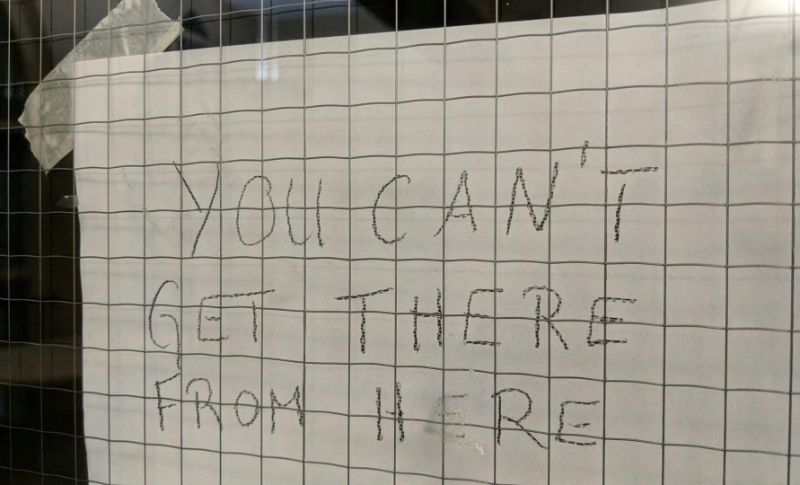 YOU CAN'T
GET THERE
FROM HERE